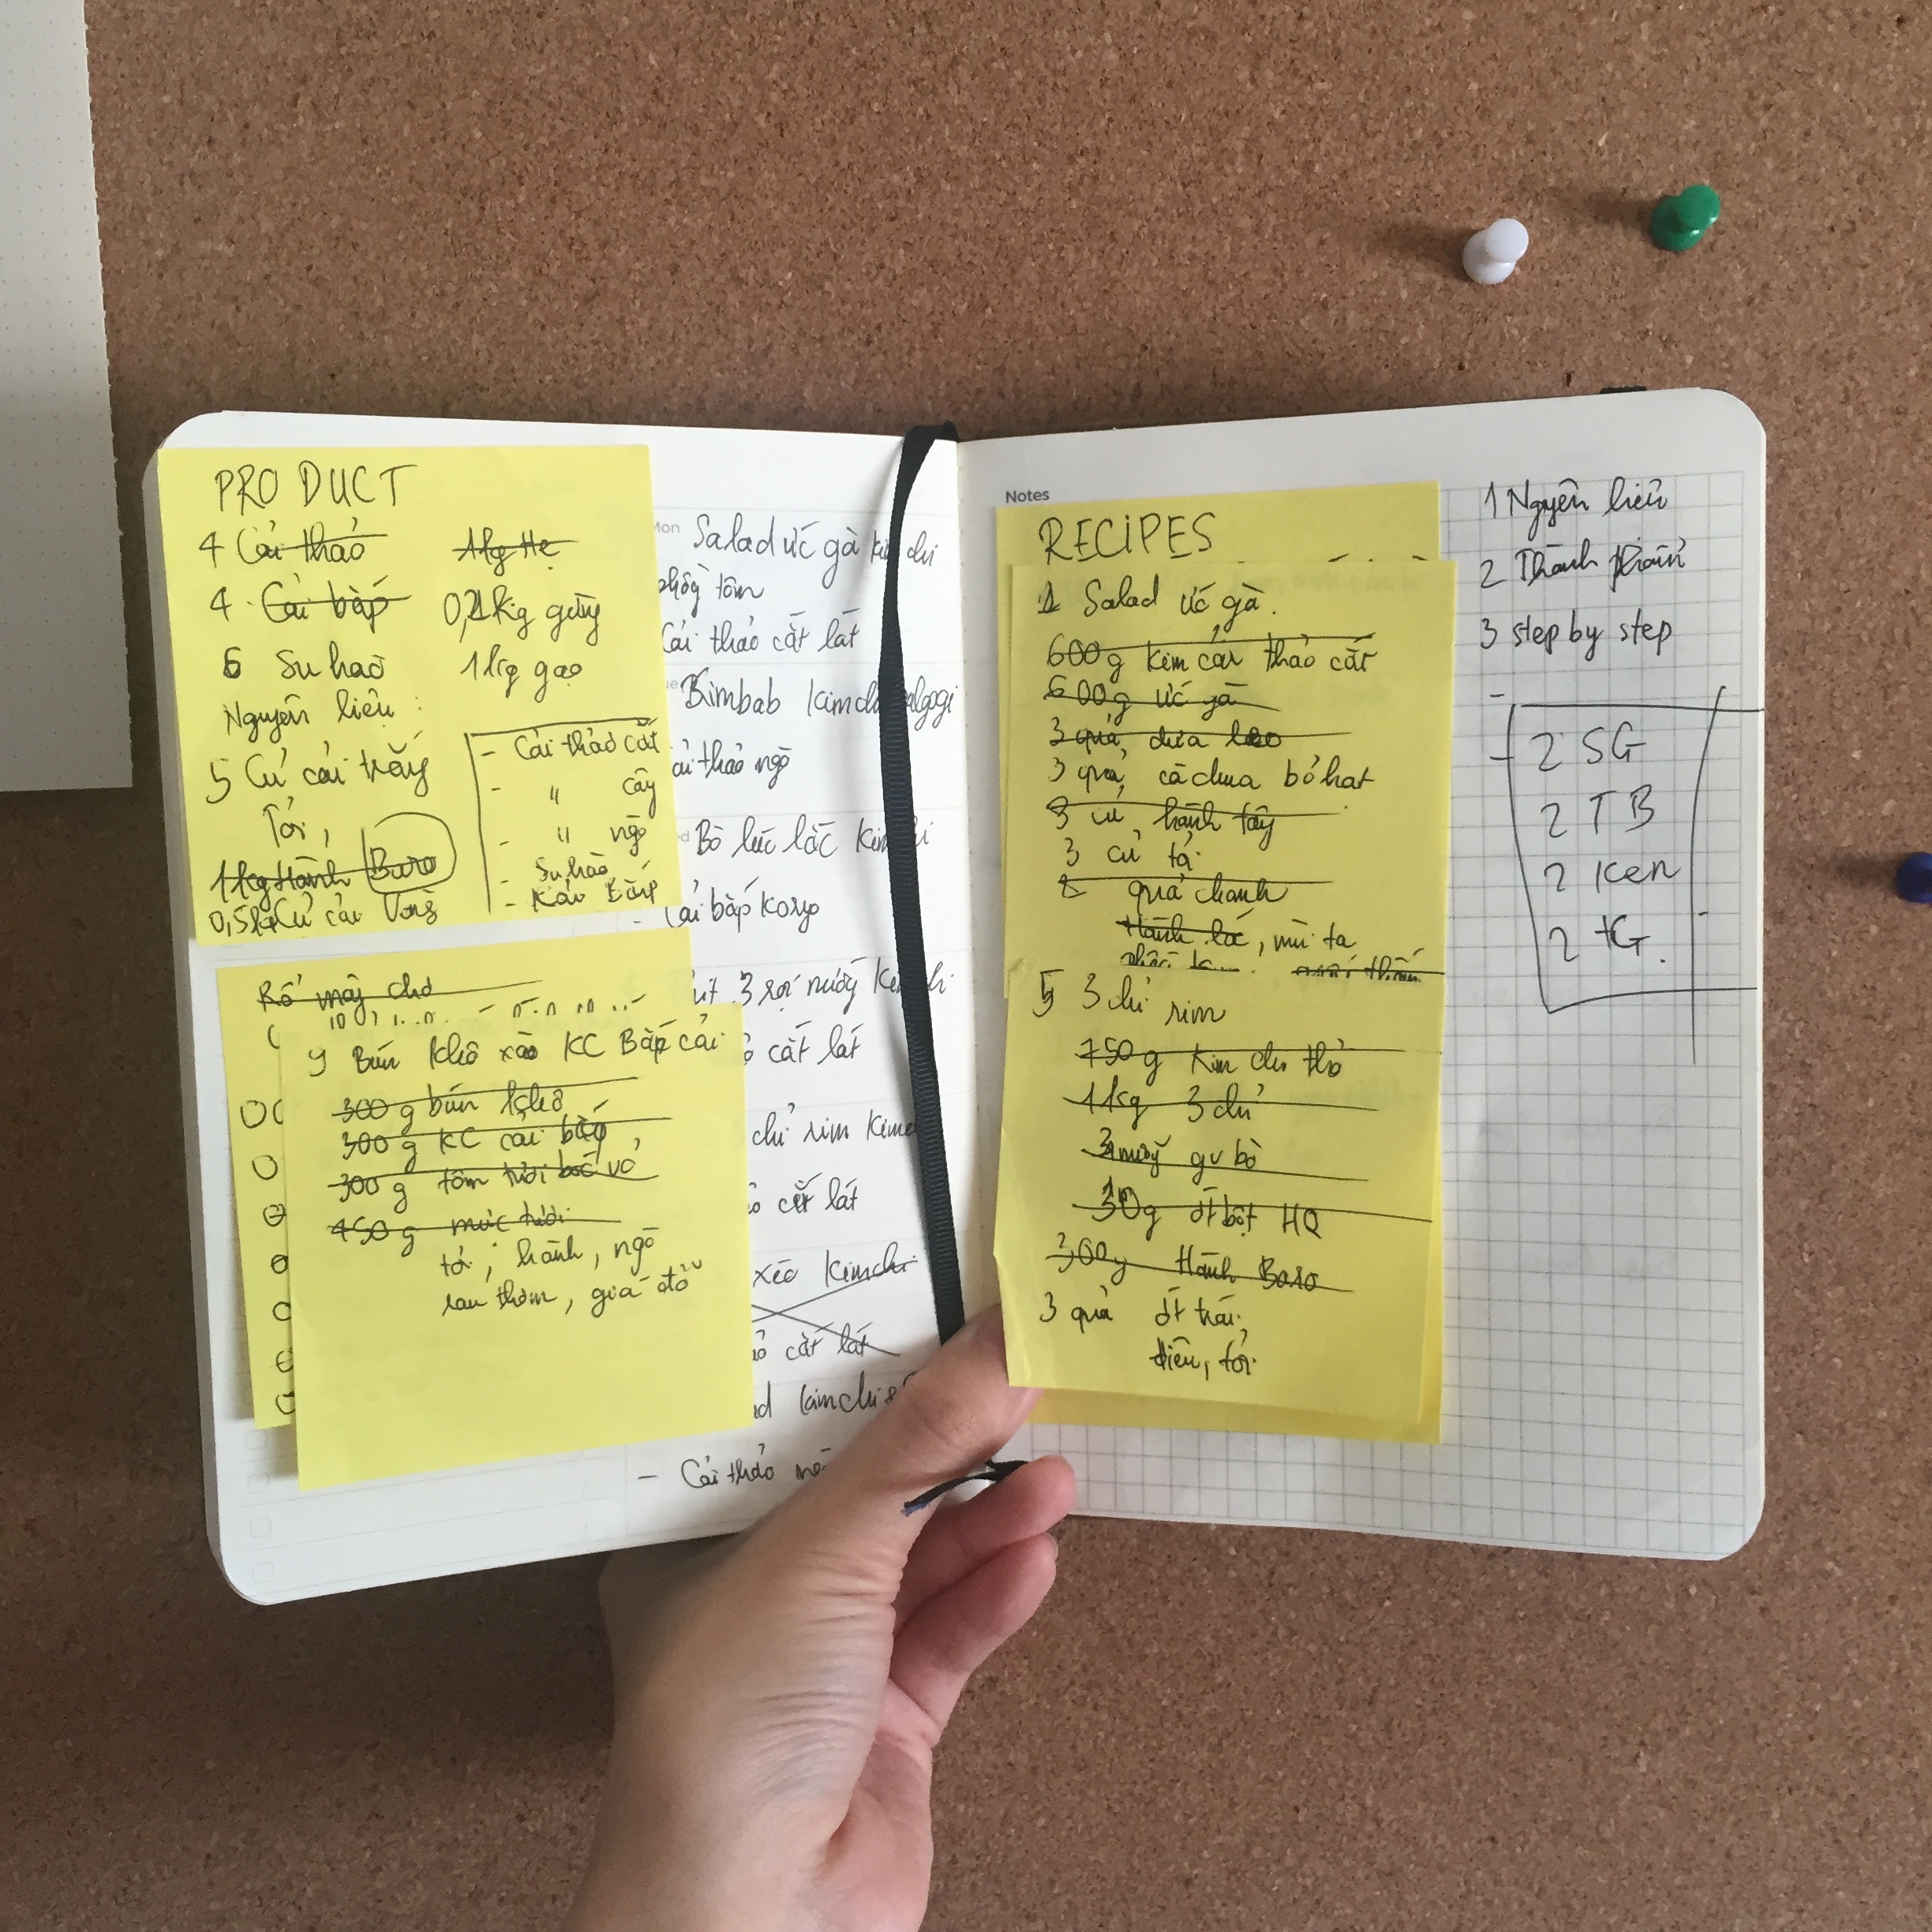 PRODUCT
4 Cải thảo
1kg Hẹ
4 Cải bắp
0,21kg gừng
6 Su hào
1kg gạo
Nguyên liệu :
5 Củ cải trắng
Tỏi,
1kg Hành Baro
0,5kg Củ cải
- Cải thảo cắt
- " cây
- "
- Su hào
Rổ mây chợ
9 Bún khô xào KC Bắp cải
300 g bún khô
300 g KC cải bắp
300 g tôm tươi bóc vỏ
450 g mực tươi
tỏi, hành, ngò
rau thơm, giá đỗ
Mon Salad ức gà
phồng tôm
Cải thảo cắt lát
Bimbab
Bò lúc lắc
cải bắp
3 rọi nướng
cắt lát
chỉ rim
cắt lát
xéo kimchi
cắt lát
kimchi
- Cải thảo
Notes
RECIPES
1 Salad ức gà.
600 g kim cải thảo cắt
600 g ức gà
3 quả dưa leo
3 quả cà chua bỏ hạt
3 củ hành tây
3 củ tỏi
2 quả chanh
Hành lá, mùi ta
5 3 chỉ rim
750 g kim chi thảo
1kg 3 chỉ
gv bò
ớt bột HQ
300g Hành Baro
3 quả ớt trái
điều, tỏi
1 Nguyên liệu
2 Thành phẩm
3 step by step
2 SG
2 TB
2 Ken
2 tG.